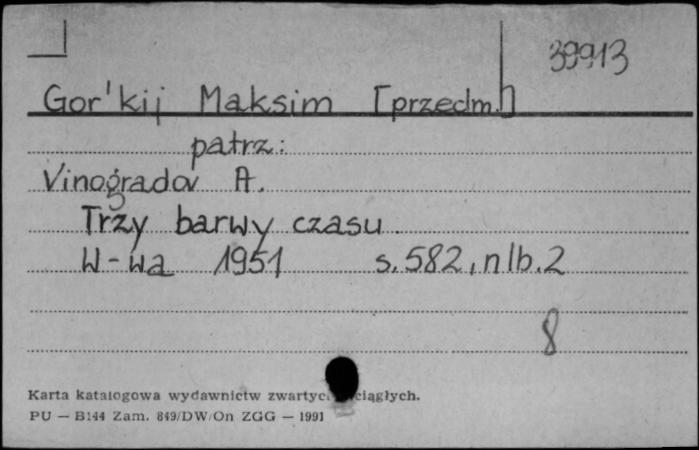 39913
Gor'kij Maksim [przedm.]
patrz:
Vinogradov A.
Trzy barwy czasu.
W-wa 1951 s. 582, nlb. 2
8
Karta katalogowa wydawnictw ciągłych.
PU — B144 Zam. 849/DW/On ZGG — 1991